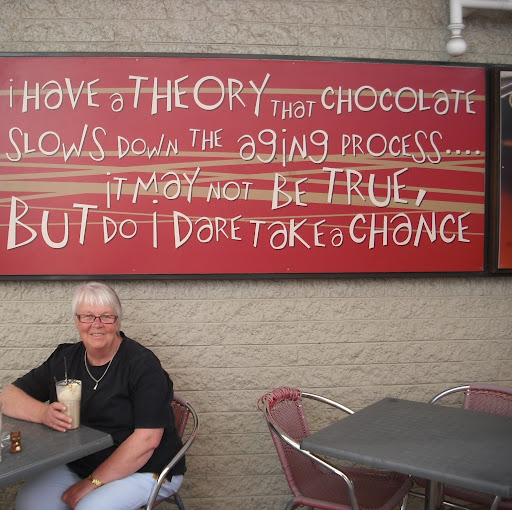 i HAVE a THEORY THAT CHOCOLATE
SLOWS DOWN THE aging PROCESS....
iT MAY NOT BE TRUE,
BUT DO i DaRE TAKE a CHaNCE